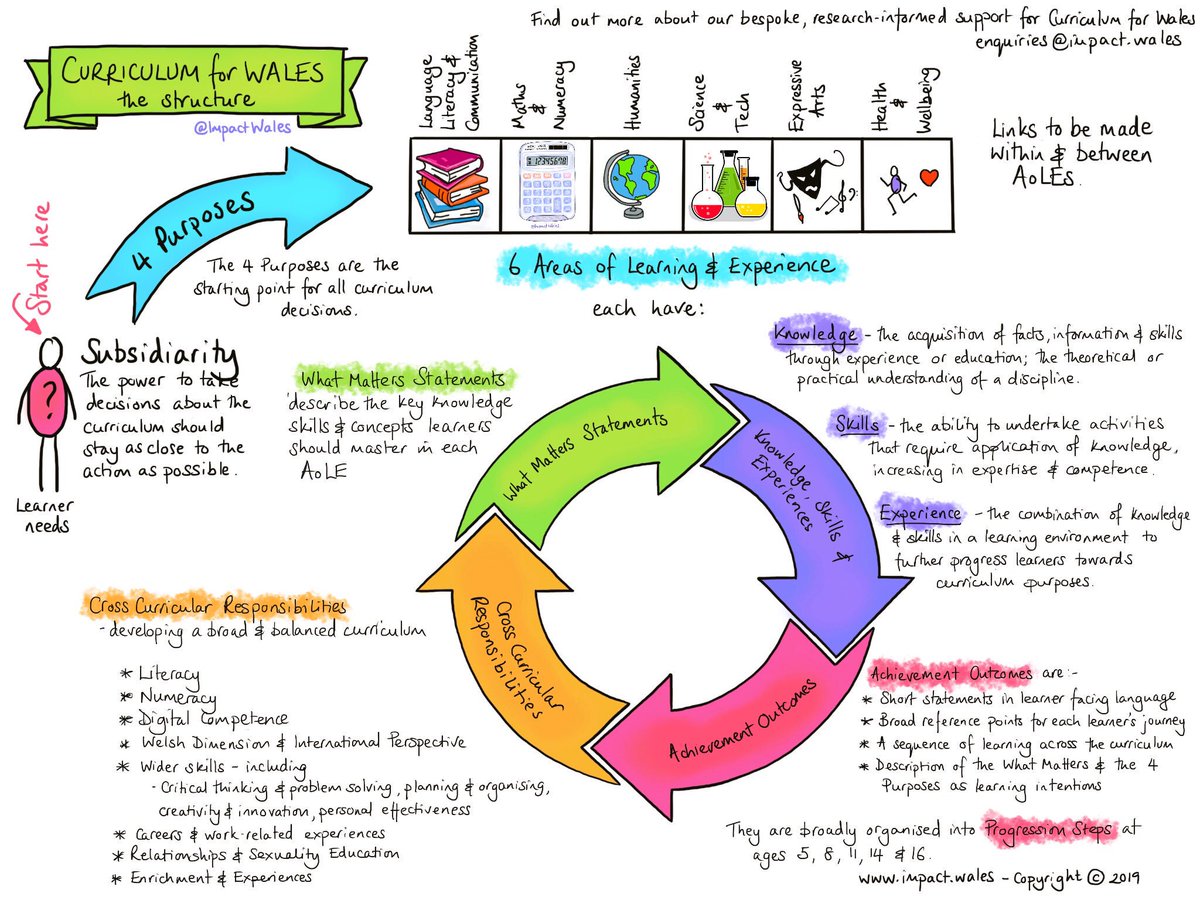 Find out more about our bespoke, research-informed support for Curriculum for Wales
enquiries@impact.wales
CURRICULUM for WALES
the structure
@ImpactWales
Language
Literacy &
Communication
Maths
&
Numeracy
Humanities
Science
&
Tech
Expressive
Arts
Health
&
Wellbeing
12345678
Links to be made
within & between
AoLEs.
4 Purposes
The 4 Purposes are the
starting point for all curriculum
decisions.
6 Areas of Learning & Experience
each have:
Start here
?
Learner
needs
Subsidiarity
The power to take
decisions about the
curriculum should
stay as close to the
action as possible.
What Matters Statements
describe the key knowledge
skills & concepts learners
should master in each
AoLE
Knowledge - the acquisition of facts, information & skills
through experience or education; the theoretical or
practical understanding of a discipline.
Skills - the ability to undertake activities
that require application of knowledge,
increasing in expertise & competence.
Experience - the combination of knowledge
& skills in a learning environment to
further progress learners towards
curriculum purposes.
What Matters Statements
Knowledge, Skills &
Experiences
Achievement Outcomes
Cross Curricular
Responsibilities
Cross Curricular Responsibilities
- developing a broad & balanced curriculum
* Literacy
* Numeracy
* Digital Competence
* Welsh Dimension & International Perspective
* Wider skills - including
- Critical thinking & problem solving, planning & organising,
creativity & innovation, personal effectiveness
* Careers & work-related experiences
* Relationships & Sexuality Education
* Enrichment & Experiences
Achievement Outcomes are:-
* Short statements in learner facing language
* Broad reference points for each learner's journey
* A sequence of learning across the curriculum
* Description of the What Matters & the 4
Purposes as learning intentions
They are broadly organised into Progression Steps at
ages 5, 8, 11, 14 & 16.
www.impact.wales - Copyright © 2019